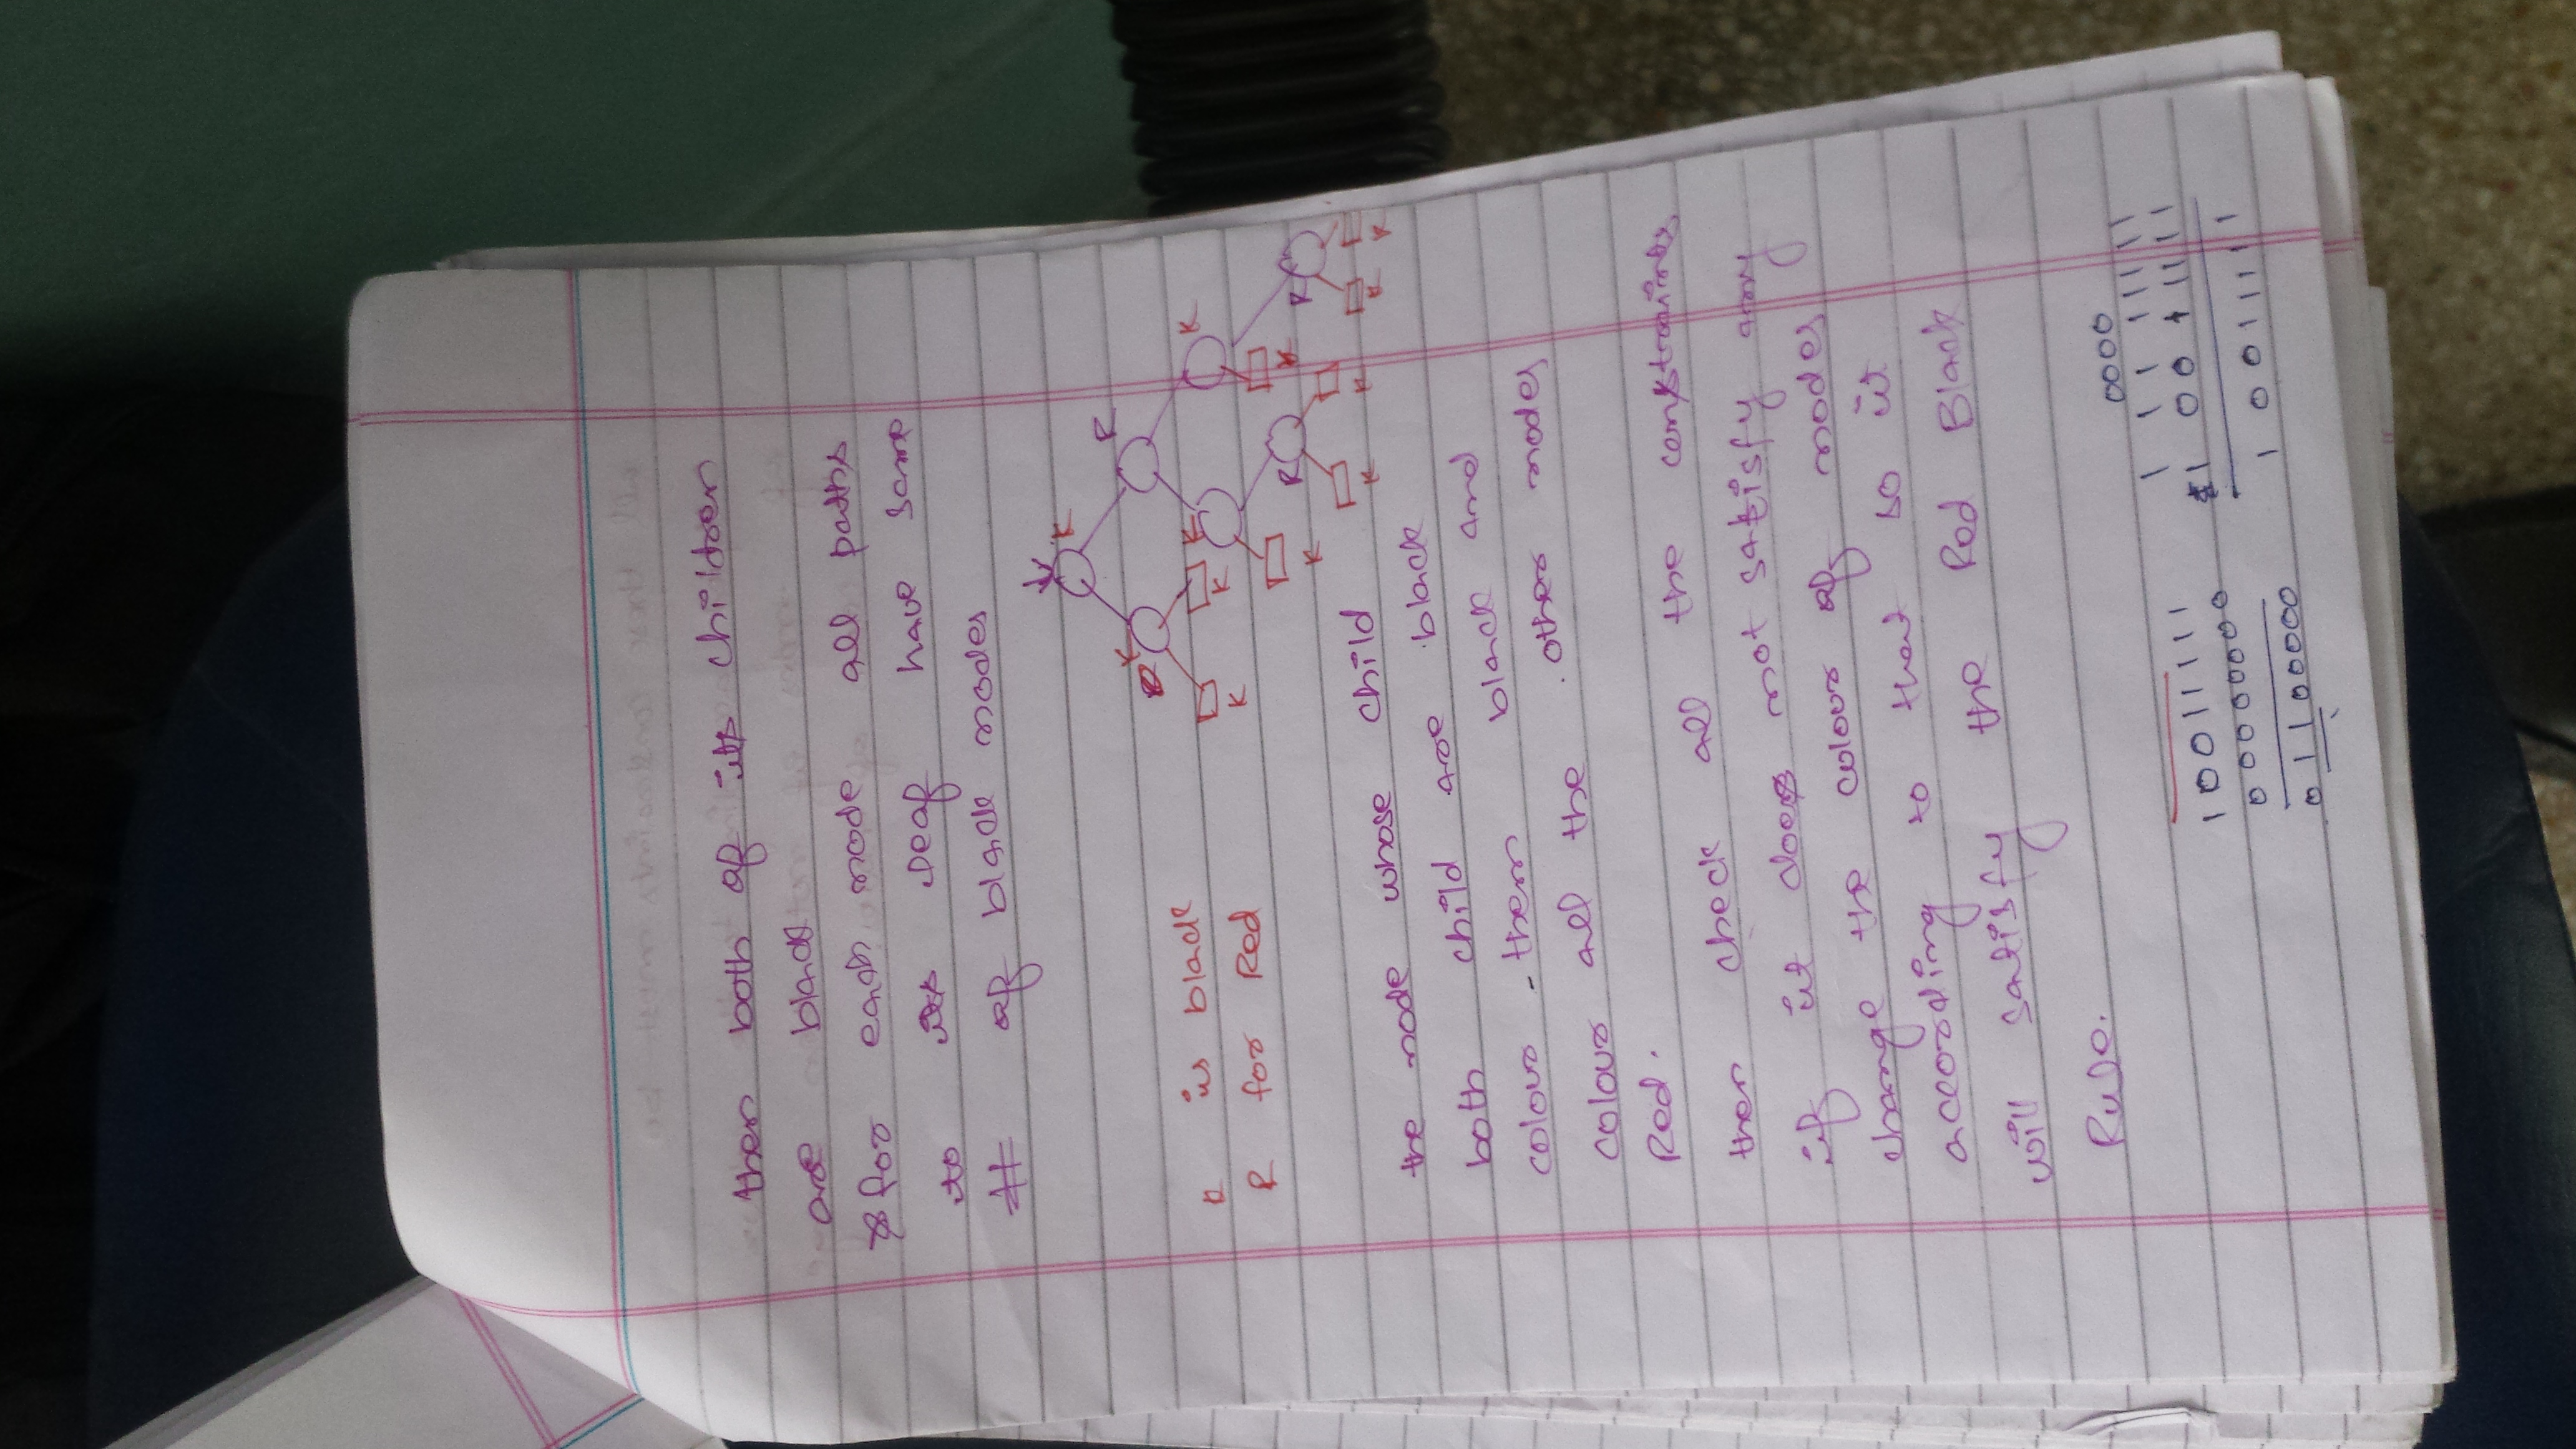 then both of its children
are black
* for each node all paths
to its leaf have same
# of black nodes
K
R
K
K
K is black
K
K
K
K
R for Red
K
R
K
R
K
K
K
K
the node whose child
both child are black
colour them black and
colour all the other nodes
Red.
then check all the constraints
if it does not satisfy any
change the colour of nodes
according to that so it
will satisfy the Red Black
Rule.
0000
1 1 1 1 1 1 1 1
1 0 0 1 1 1 1 1
1 0 0 1 1 1 1 1
1 0 0 1 1 1 1 1
0 0 0 0 0 0 0 0
0 1 1 0 0 0 0 0